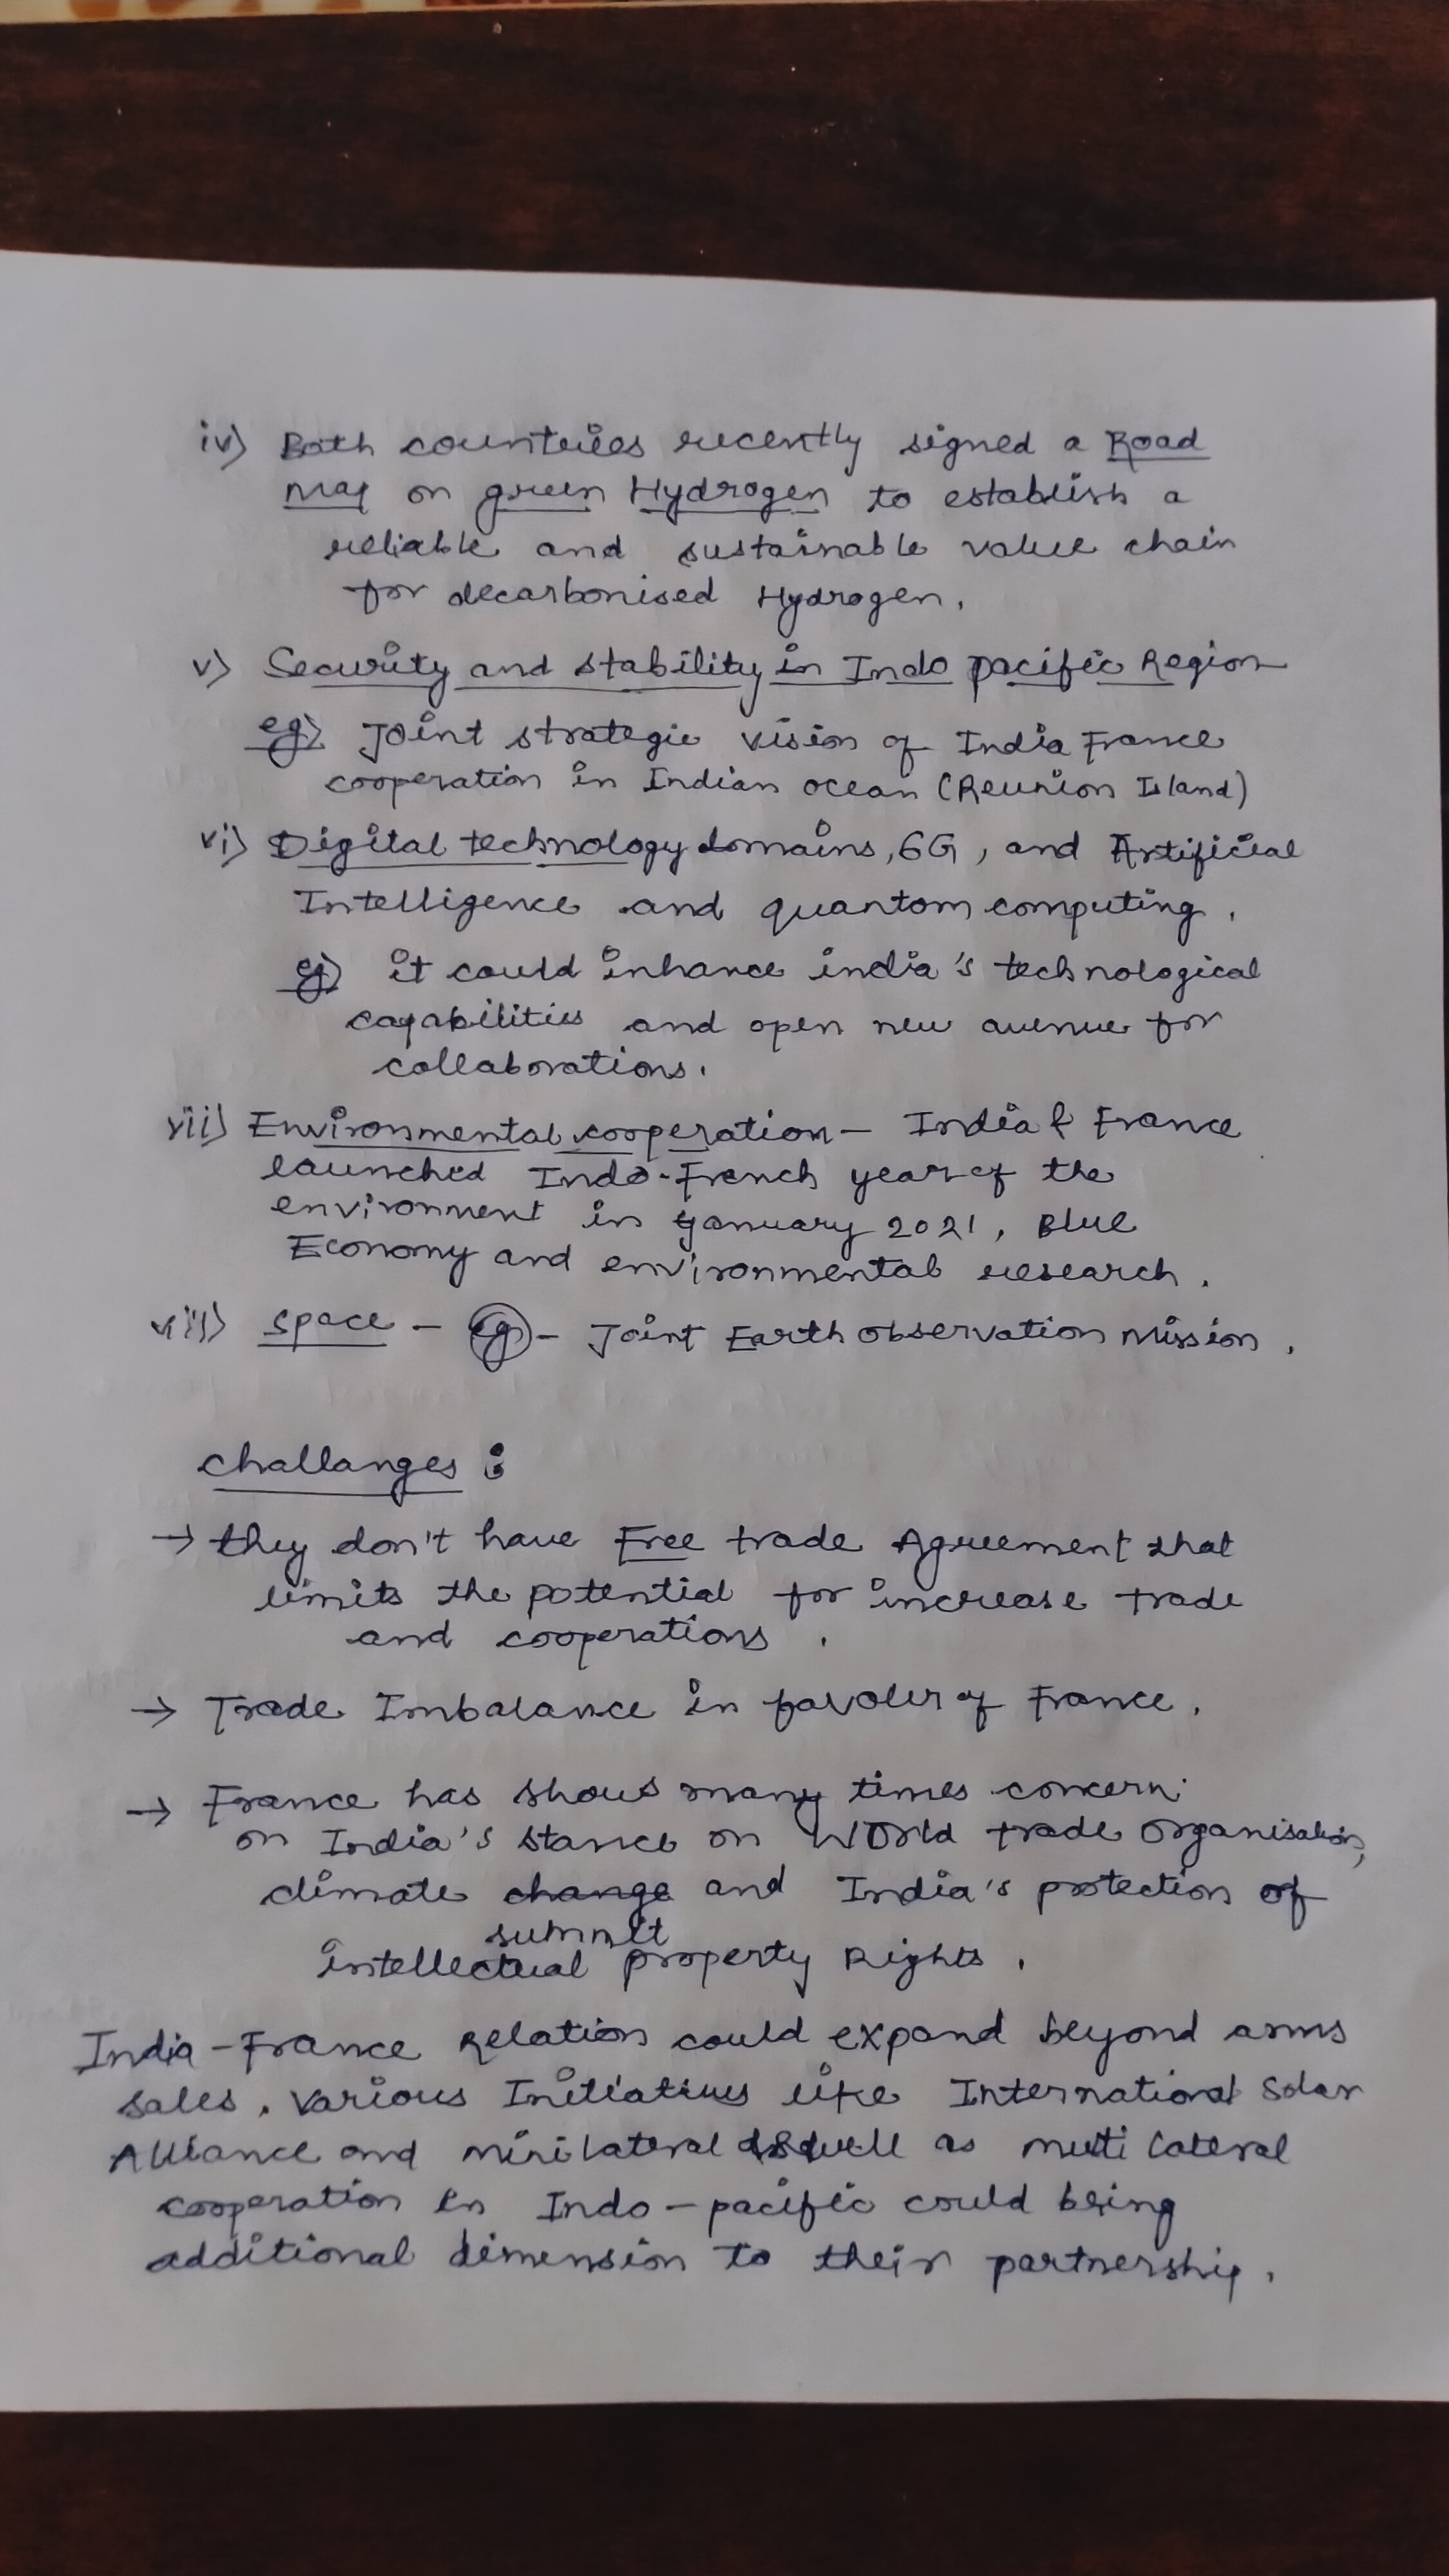 iv) Both countries recently signed a Road
Map on green Hydrogen to establish a
reliable and sustainable value chain
for decarbonised Hydrogen.
v) Security and stability in Indo pacific Region
eg) Joint strategic vision of India France
cooperation in Indian ocean (Reunion Island)
vi) Digital technology domains, 6G, and Artificial
Intelligence and quantom computing.
eg) it could inhance india's technological
capabilities and open new avenue for
collaborations.
vii) Environmental cooperation - India & France
launched Indo-French year of the
environment in january 2021, Blue
Economy and environmental research.
viii) space - eg - Joint Earth observation Mission.
challanges :
→ they don't have Free trade Agreement that
limits the potential for increase trade
and cooperations.
→ Trade Imbalance in favour of France.
→ France has shows many times concern
on India's stance on World trade organisation,
climate change and India's protection of
summit
intellectual property Rights.
India-France Relation could expand beyond arms
sales. various Initiatives like International Solar
Alliance and minilateral as well as multi lateral
cooperation in Indo-pacific could bring
additional dimension to their partnership.